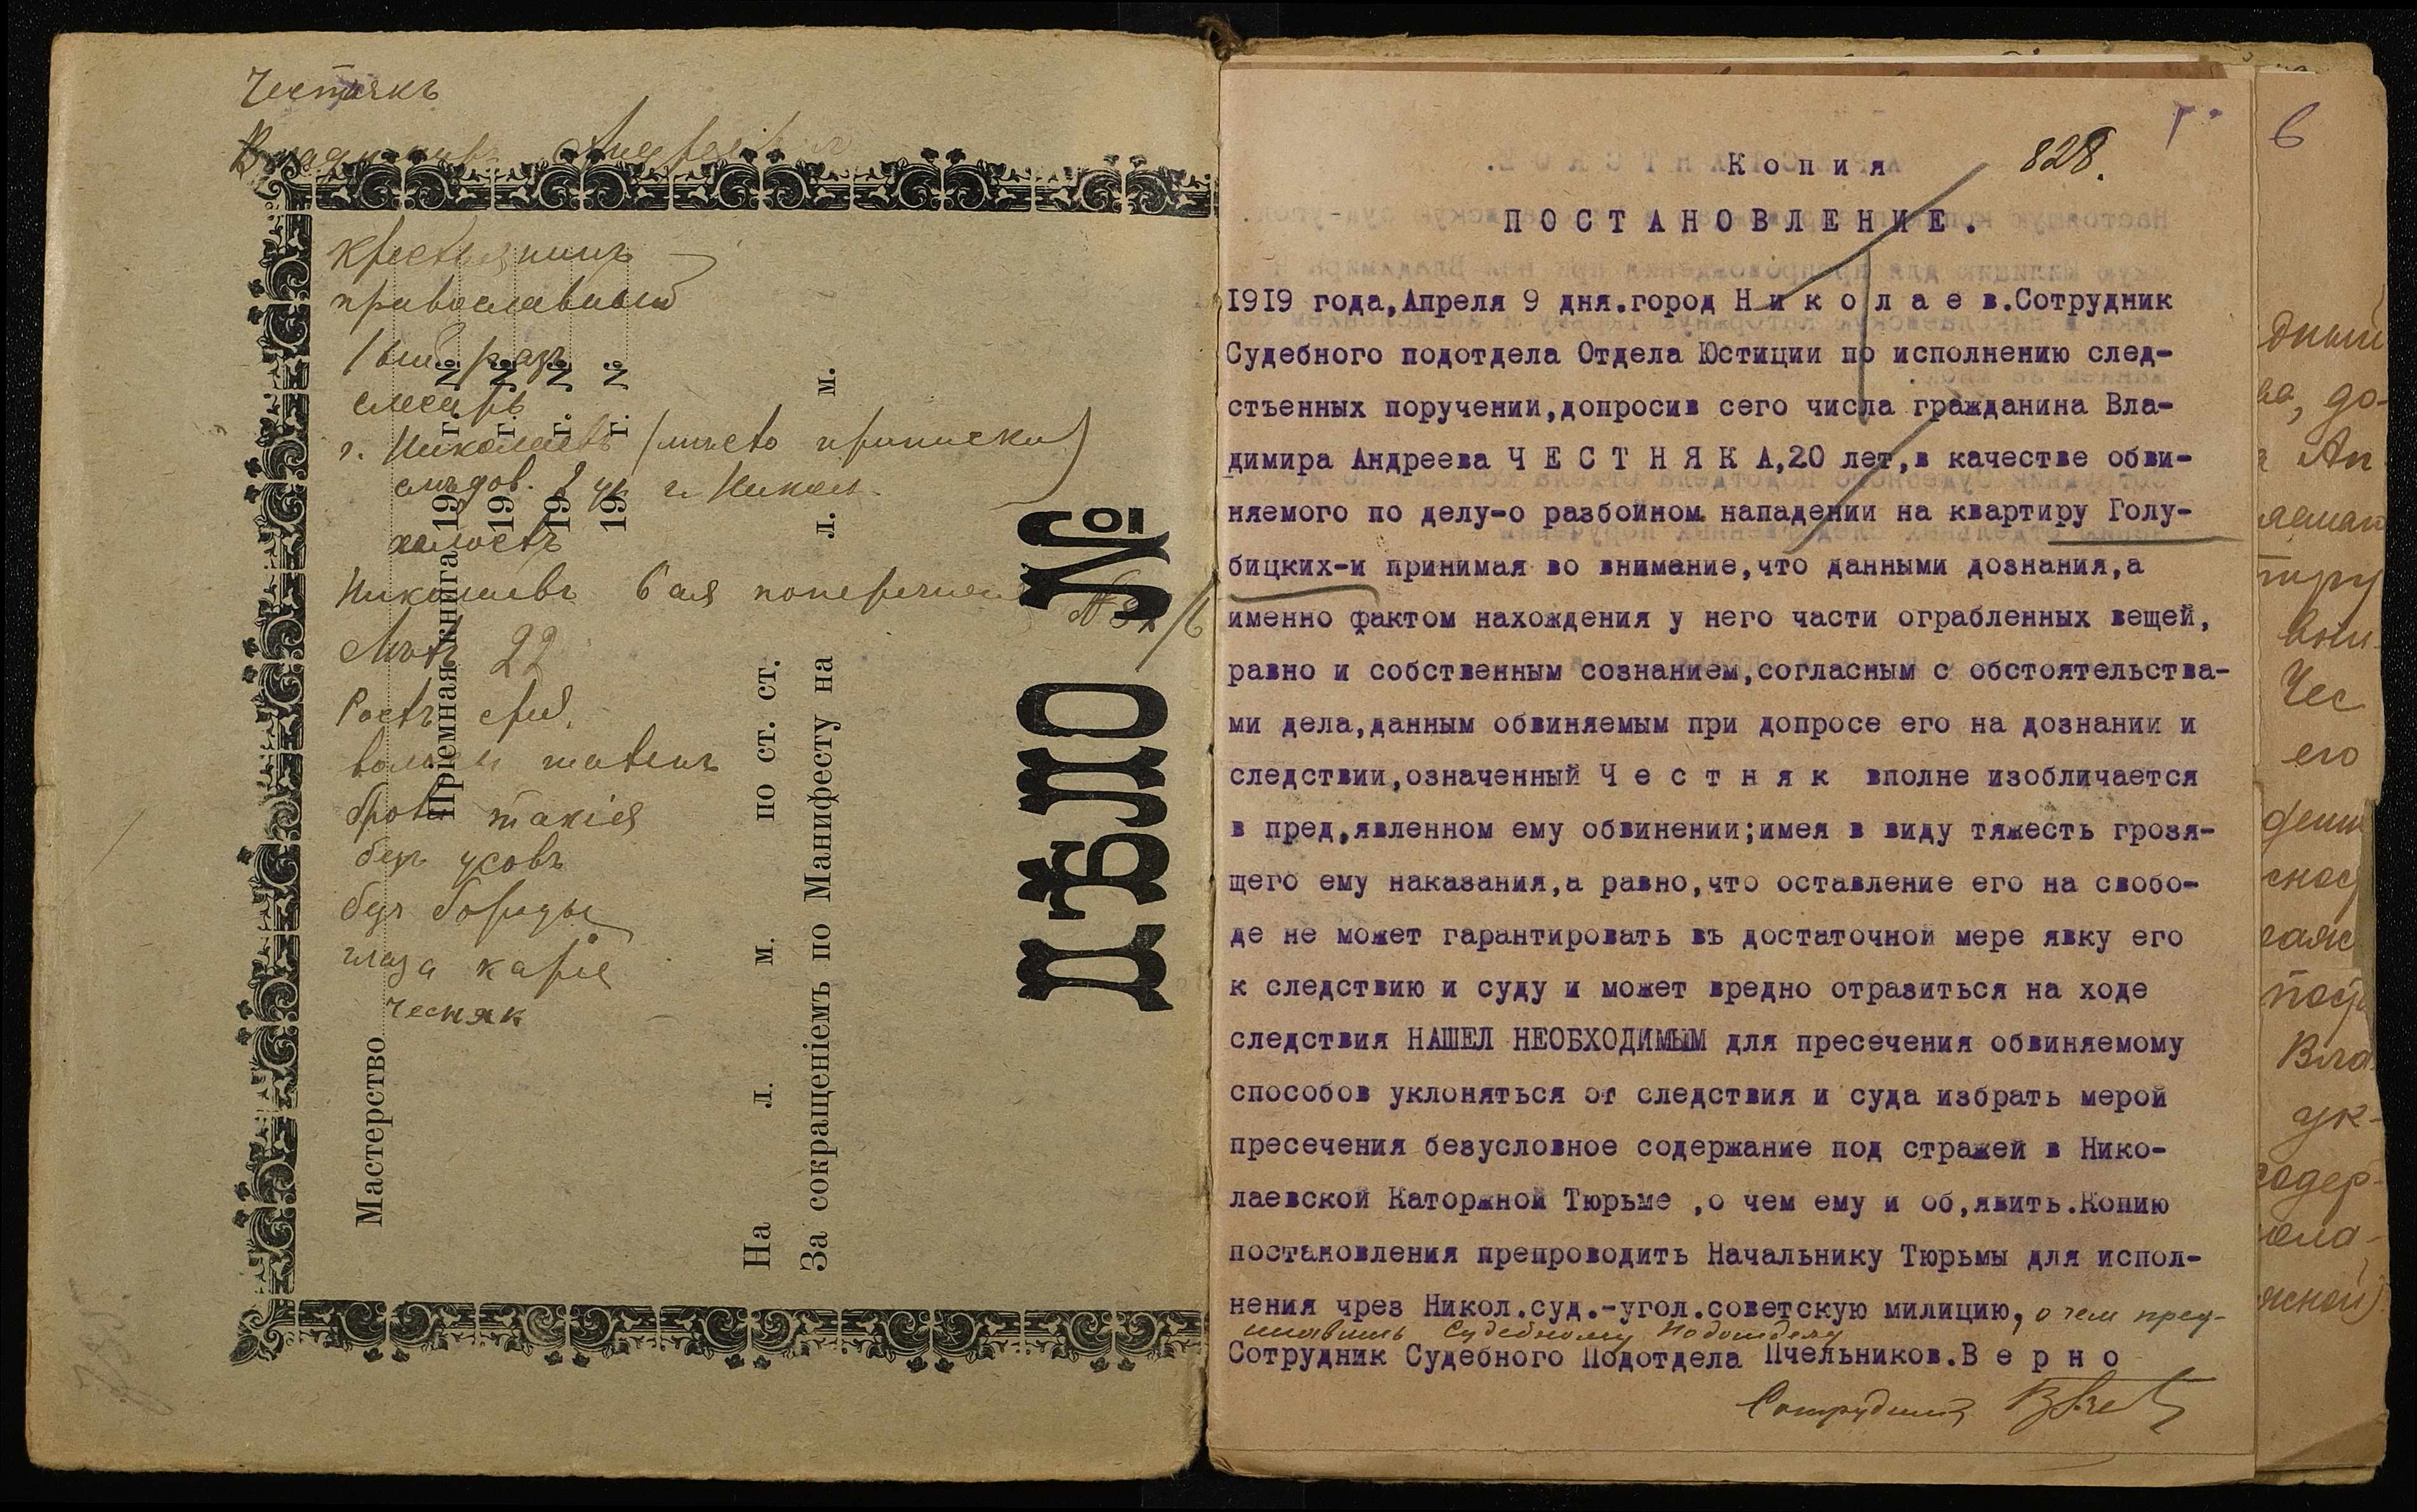 Честнякъ
Владимиръ Андреевъ
крестьянинъ
православный
1 ый разъ
слесарь
г. Николаевъ (мѣсто приписки)
слѣдов. 2 уч г. Никол.
холостъ
Николаевъ 6 ая поперечная № 32/6
Лѣтъ 22
Ростъ сред.
волосы шатенъ
брови такія
безъ усовъ
безъ бороды
глаза каріе
чесняк
Мастерство
Пріемная книга 19 г. №
19 г. №
19 г. №
19 г. №
На л. м. по ст. ст.
За сокращеніемъ по Манифесту на л. м.
ДѢЛО №
828.
К о п и я
П О С Т А Н О В Л Е Н И Е .
1919 года,Апреля 9 дня.город Н и к о л а е в.Сотрудник
Судебного подотдела Отдела Юстиции по исполнению след-
стъенных поручении,допросив сего числа гражданина Вла-
димира Андреева Ч Е С Т Н Я К А,20 лет,в качестве обви-
няемого по делу-о разбойном нападении на квартиру Голу-
бицких-и принимая во внимание,что данными дознания,а
именно фактом нахождения у него части ограбленных вещей,
равно и собственным сознанием,согласным с обстоятельства-
ми дела,данным обвиняемым при допросе его на дознании и
следствии,означенный Ч е с т н я к вполне изобличается
в пред,явленном ему обвинении;имея в виду тяжесть грозя-
щего ему наказания,а равно,что оставление его на свобо-
де не может гарантировать въ достаточной мере явку его
к следствию и суду и может вредно отразиться на ходе
следствия НАШЕЛ НЕОБХОДИМЫМ для пресечения обвиняемому
способов уклоняться от следствия и суда избрать мерой
пресечения безусловное содержание под стражей в Нико-
лаевской Каторжной Тюрьме ,о чем ему и об,явить.Копию
постановления препроводить Начальнику Тюрьмы для испол-
нения чрез Никол.суд.-угол.советскую милицию, о чем пред-
ставить Судебному Подотделу
Сотрудник Судебного Подотдела Пчельников.В е р н о
Сотрудник
6